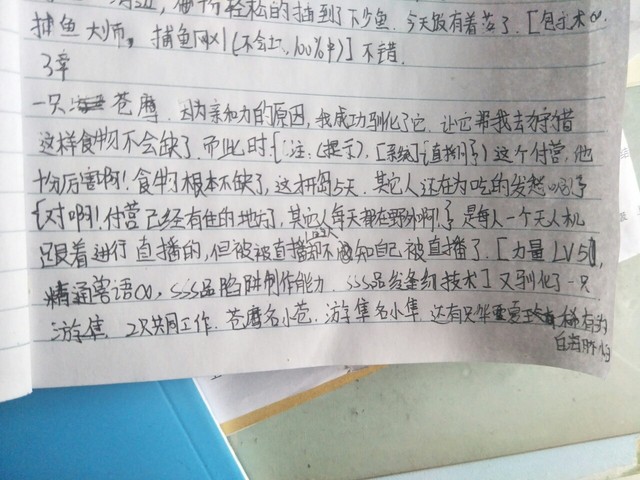 轻松的捕到了不少鱼. 今天饭有着落了. [包子术∞.
捕鱼大师, 捕鱼网x1(不会亡, 100%中)] 不错.
3章
一只苍鹰. 因为亲和力的原因, 我成功驯化了它. 让它帮我去狩猎
这样食物不会缺了. 而此时{注:(提示), [系统]{直播间}) 这个付营, 他
十分厉害啊! 食物根本不缺了, 这才第5天. 其它人还在为吃的发愁呢}
{对啊! 付营已经有住的地方了, 其它人每天都在野外啊!} 是每人一个无人机
跟着进行直播的, 但被直播却不知自己被直播了. [力量LV50,
精通兽语∞, SSS品陷阱制作能力. SSS品发条纺技术] 又驯化了一只
游隼. 2只共同工作. 苍鹰名小苍. 游隼名小隼. 还有只华夏